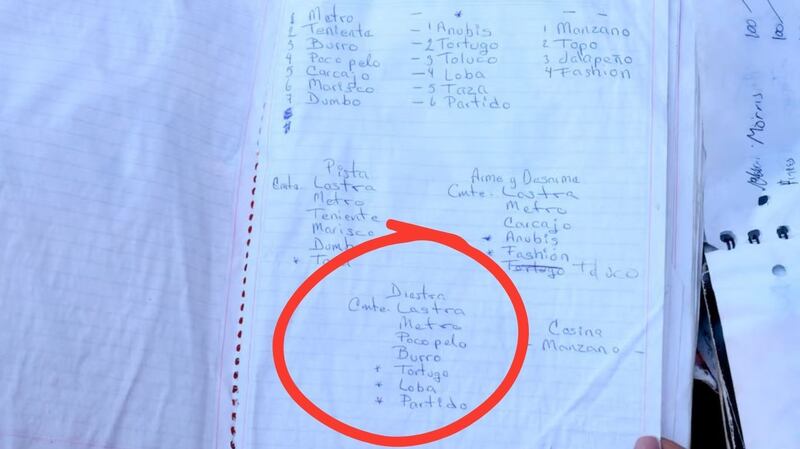 1 Metro
2 Teniente
3 Burro
4 Pocopelo
5 Carcajo
6 Marisco
7 Dumbo
8
- 1 Anubis
- 2 Tortugo
- 3 Toluco
- 4 Loba
- 5 Taza
- 6 Partido
1 Manzano
2 Topo
3 Jalapeño
4 Fashion
Pista
Cmte. Lastra
Metro
Teniente
Marisco
Dumbo
Arme y Desarme
Cmte. Lastra
Metro
Carcajo
* Anubis
* Fashion
Tortugo Toluco
Diestra
Cmte. Lastra
Metro
Pocopelo
Burro
* Tortugo
* Loba
* Partido
Cosina
- Manzano -
100
100
Morris